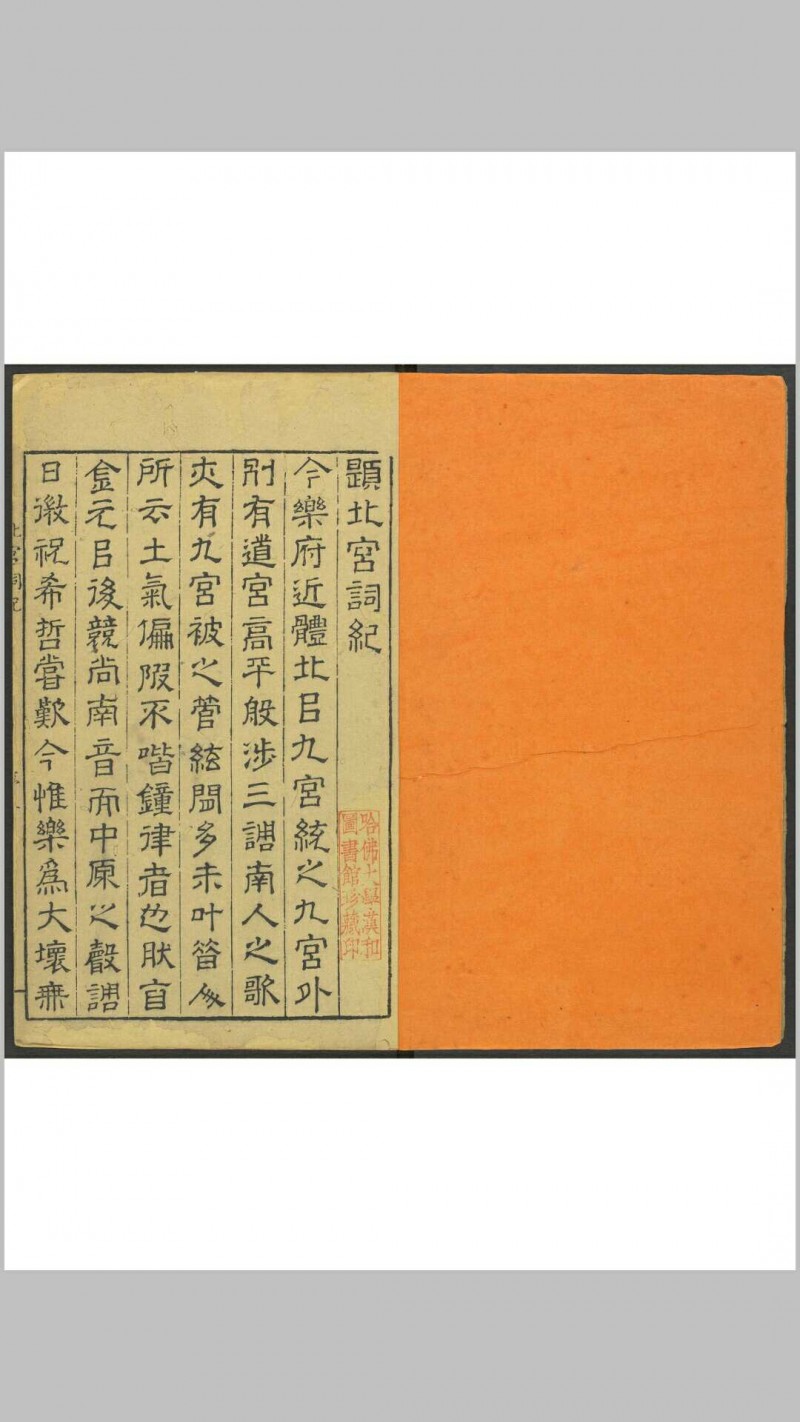 題北宮詞紀
今樂府近體北㠯九宮統之九宮外
別有道宮高平般涉三調南人之歌
亦有九宮被之管絃閒多未叶昔人
所云土氣偏陂不喈鐘律者也肰自
金元㠯後競尚南音而中原之聲調
日𢾷祝希哲嘗歎今惟樂爲大壞無
哈佛大學漢和
圖書館珍藏印
北宮詞紀